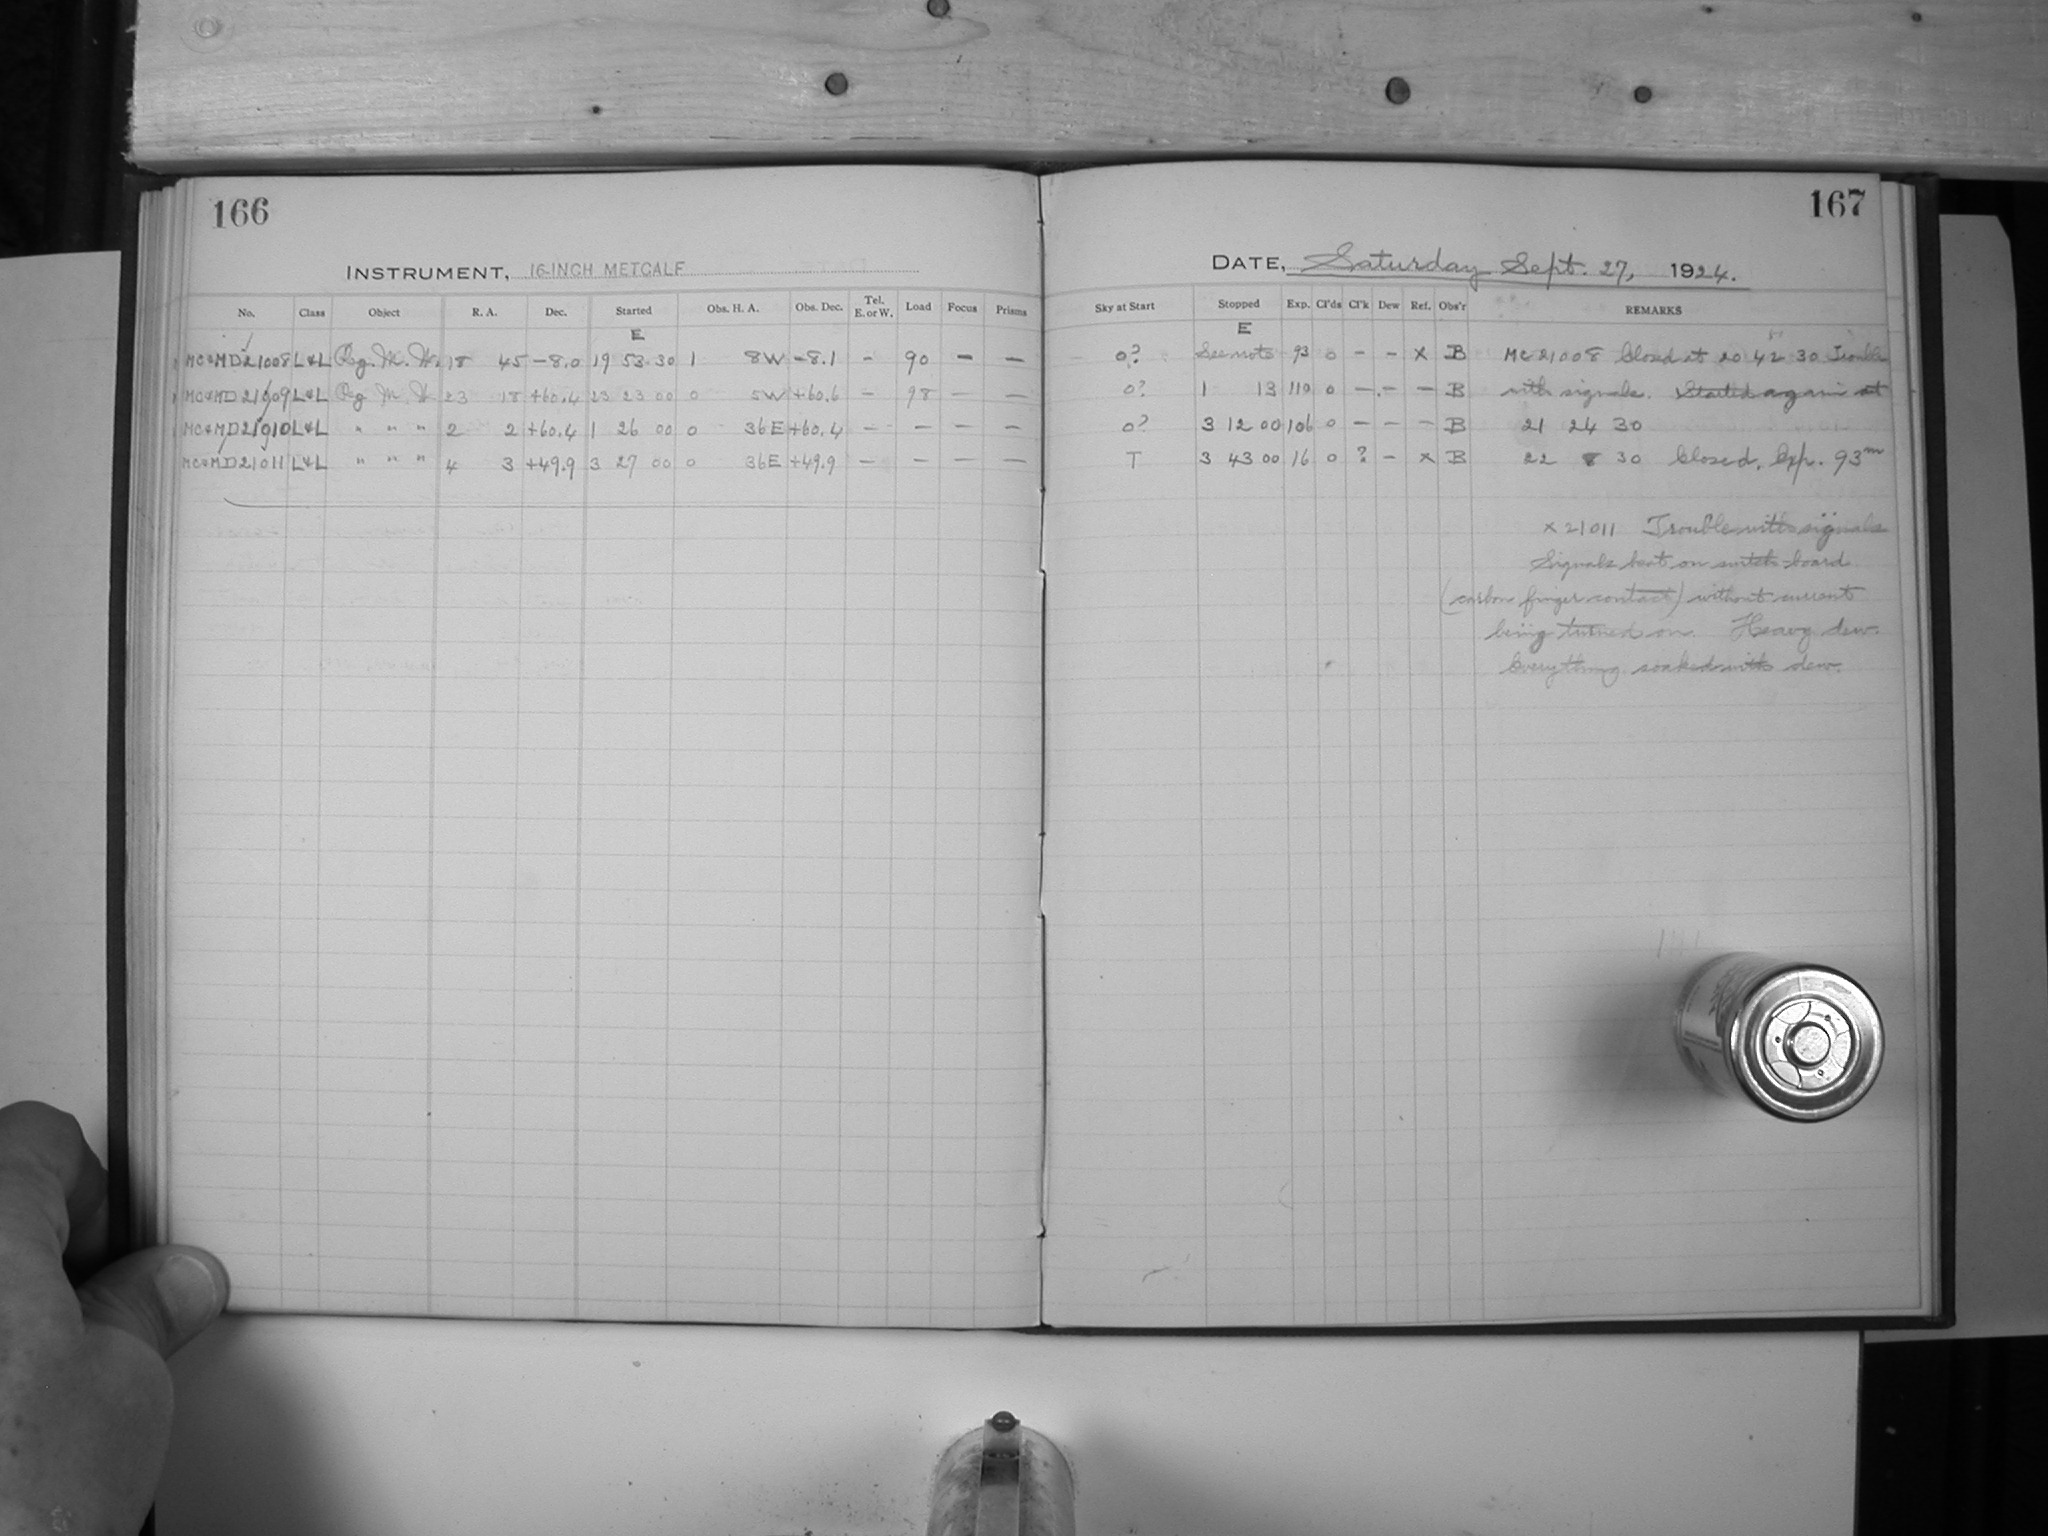 166
INSTRUMENT, 16-INCH METCALF
No. Class Object R. A. Dec. Started Obs. H. A. Obs. Dec. Tel. E. or W. Load Focus Prisms
E
MC&MD21008 L&L Rg. M. W. 18 45 -8.0 19 53 30 1 8W -8.1 - 90 - -
MC&MD21009 L&L Rg M W 23 18 +60.4 23 23 00 0 5W +60.6 - 98 - -
MC&MD21010 L&L " " " 2 2 +60.4 1 26 00 0 36E +60.4 - - - -
MC&MD21011 L&L " " " 4 3 +49.9 3 27 00 0 36E +49.9 - - - -
167
DATE, Saturday Sept. 27, 1924.
Sky at Start Stopped Exp. Cl'ds Cl'k Dew Ref. Obs'r REMARKS
E
0? See note 93 0 - - x B MC 21008 Closed at 20 42 30 Trouble
0? 1 13 110 0 - - - B with signals. Started again at
0? 3 12 00 106 0 - - - B 21 24 30
T 3 43 00 16 0 ? - x B 22 8 30 Closed, Exp. 93m
x 21011 Trouble with signals
Signals beat on switch-board
(carbon finger contact) without current
being turned on. Heavy dew.
Everything soaked with dew.